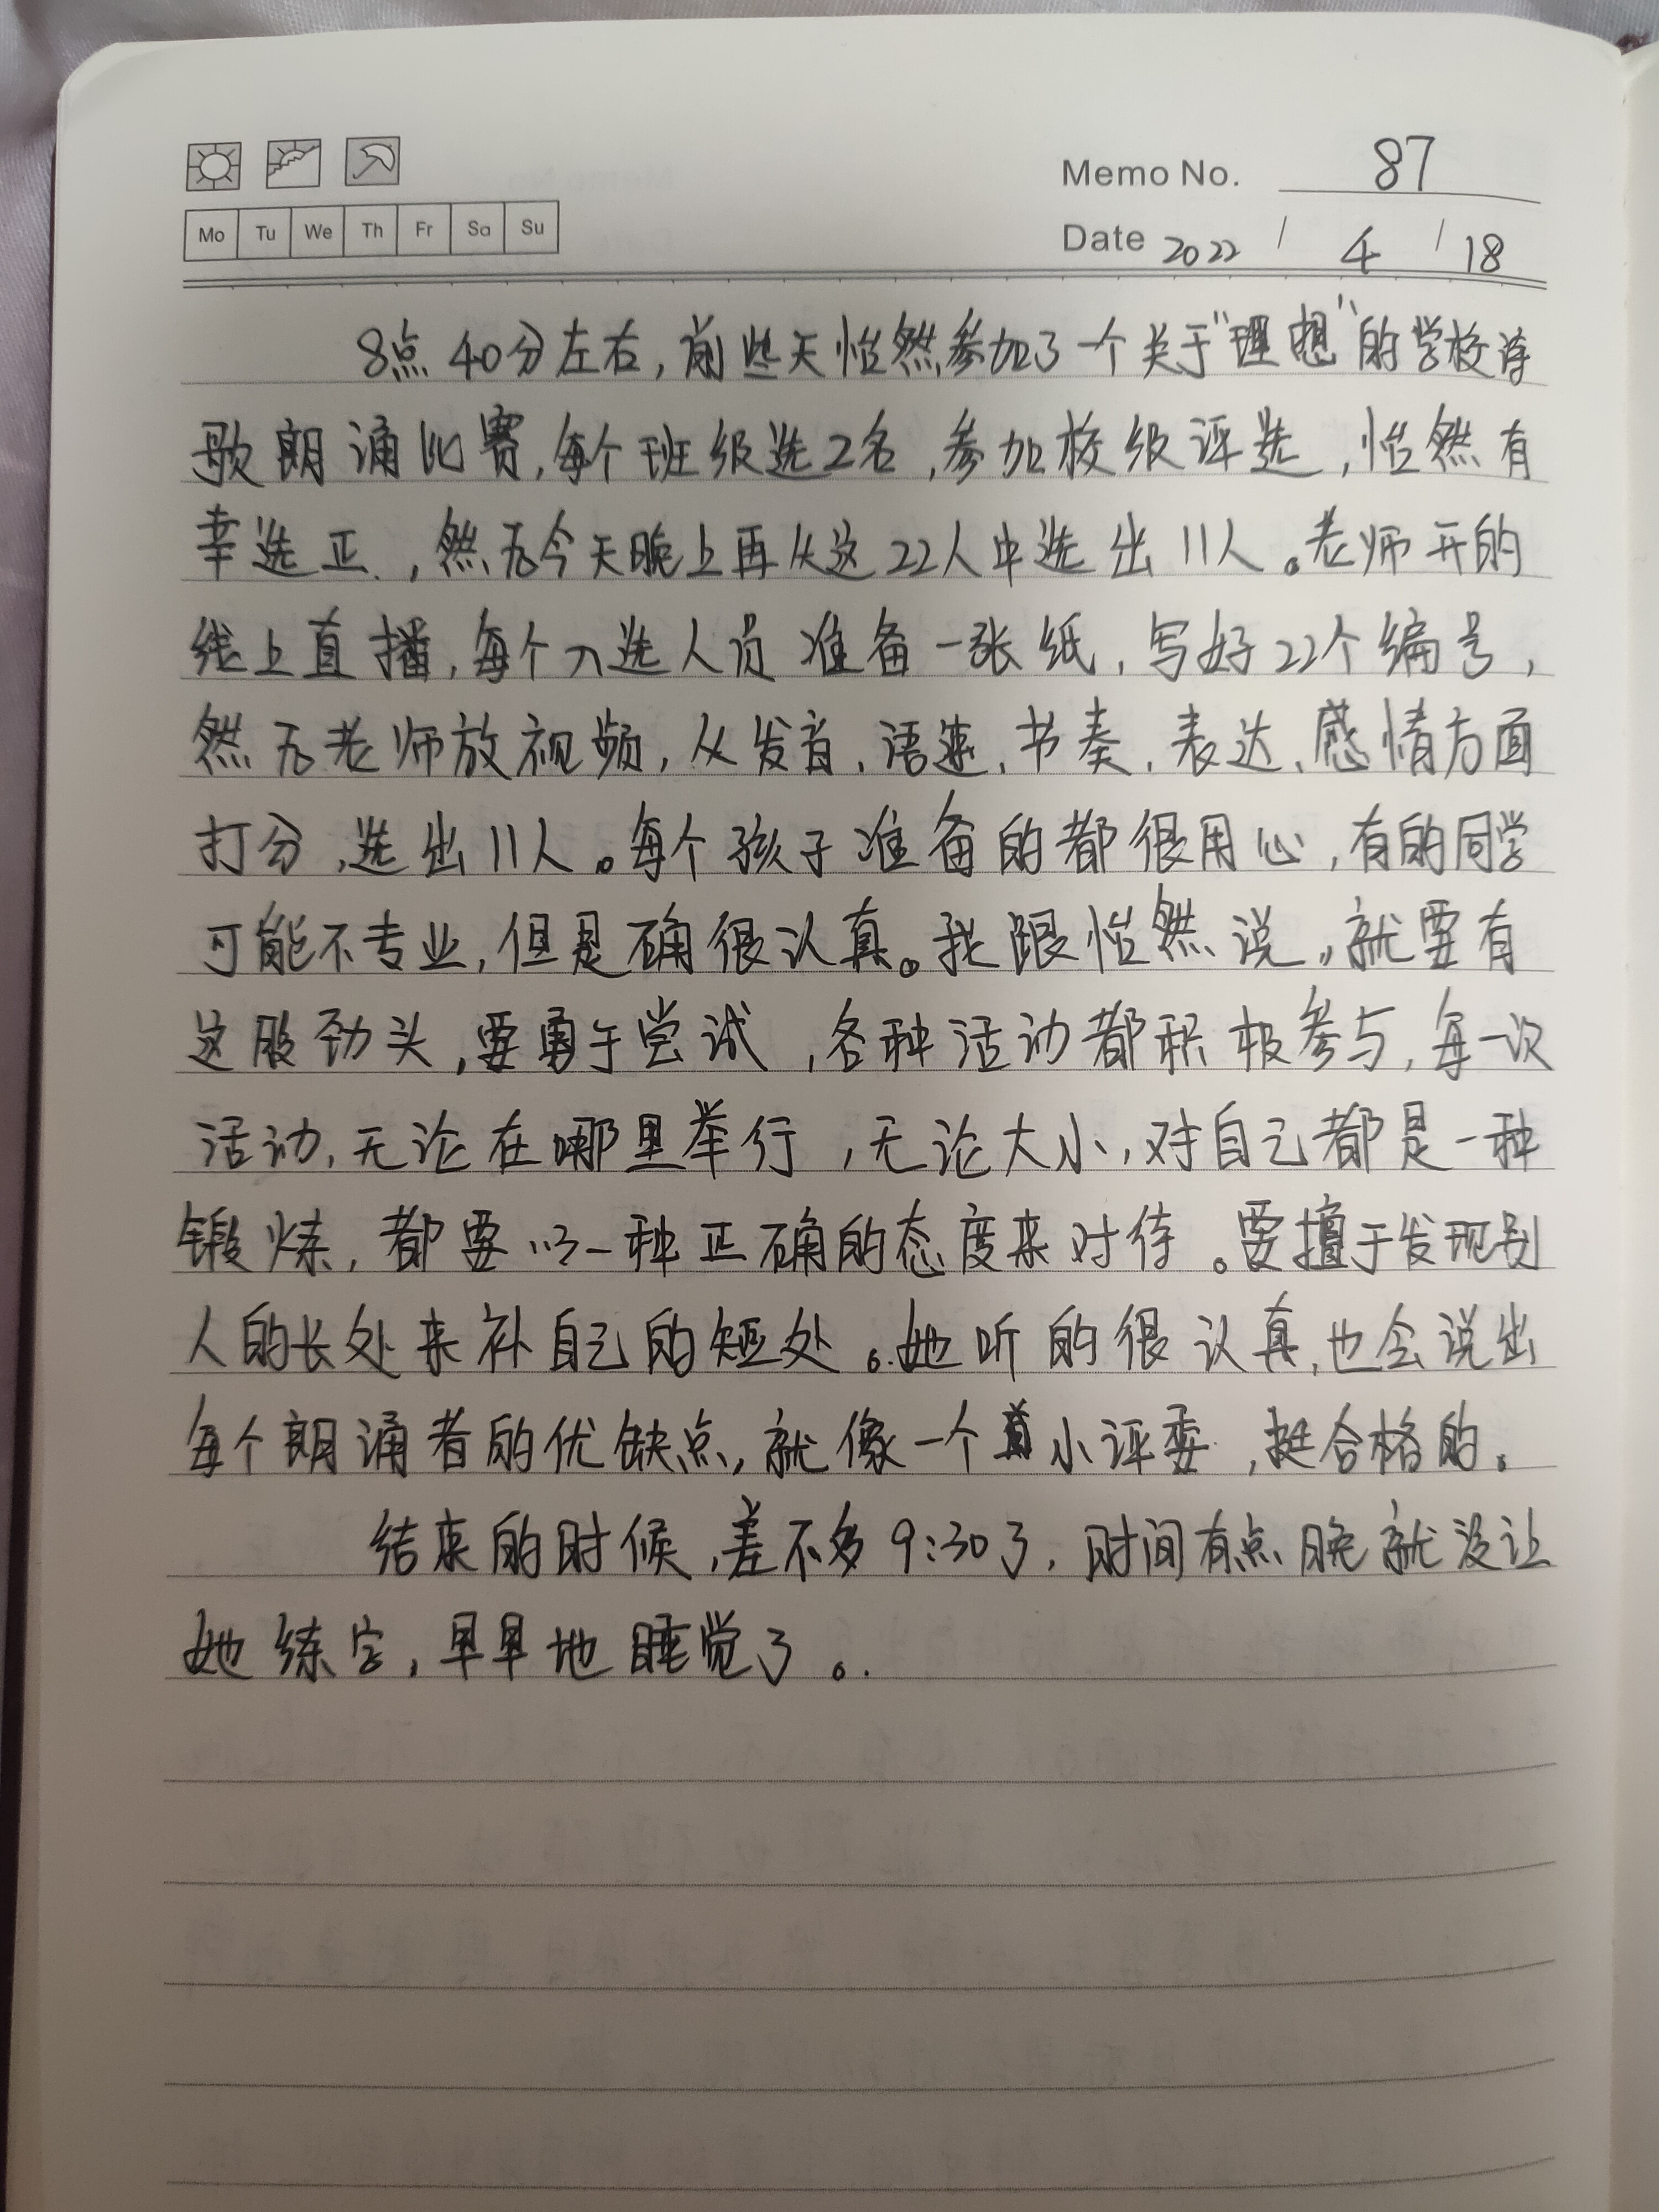 Memo No. 87
Mo Tu We Th Fr Sa Su
Date 2022 / 4 / 18
8点40分左右,前些天怡然参加了一个关于"理想"的学校诗
歌朗诵比赛,每个班级选2名,参加校级评选,怡然有
幸选正,然后今天晚上再从这22人中选出11人。老师开的
线上直播,每个入选人员准备一张纸,写好22个编号,
然后老师放视频,从发音、语速、节奏、表达、感情方面
打分,选出11人。每个孩子准备的都很用心,有的同学
可能不专业,但是确很认真。我跟怡然说,就要有
这股劲头,要勇于尝试,各种活动都积极参与,每一次
活动,无论在哪里举行,无论大小,对自己都是一种
锻炼,都要以一种正确的态度来对待。要擅于发现别
人的长处来补自己的短处。她听的很认真,也会说出
每个朗诵者的优缺点,就像一个真小评委,挺合格的。
结束的时候,差不多9:30了,时间有点晚就没让
她练字,早早地睡觉了。